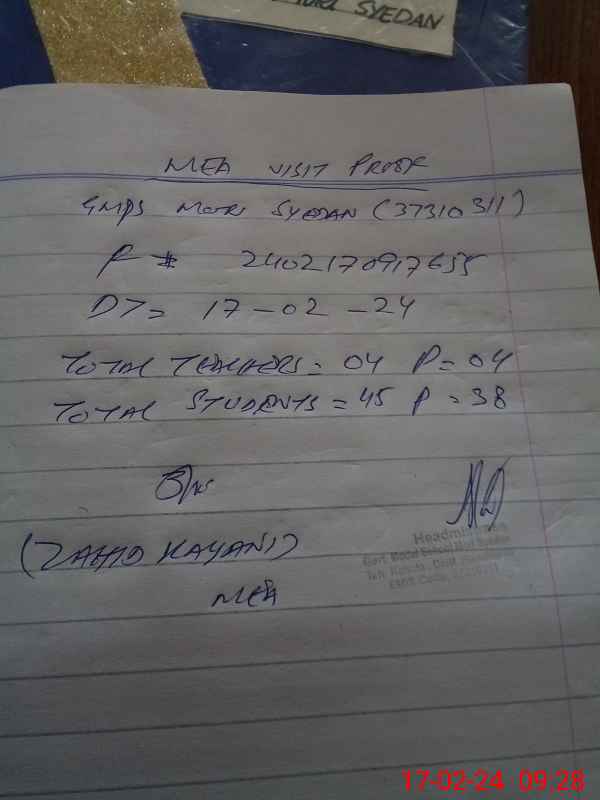 SYEDAN
MEA VISIT PROOF
GMPS MORI SYEDAN (37310311)
F # 2402170917655
DT= 17-02-24
TOTAL TEACHERS= 04 P=04
TOTAL STUDENTS=45 P=38
(ZAHID KAYANI)
MEA
Headmistress
Govt. Model School Mori Syedan
Teh. Kahuta, Distt.
EMIS Code.
17-02-24 09:28